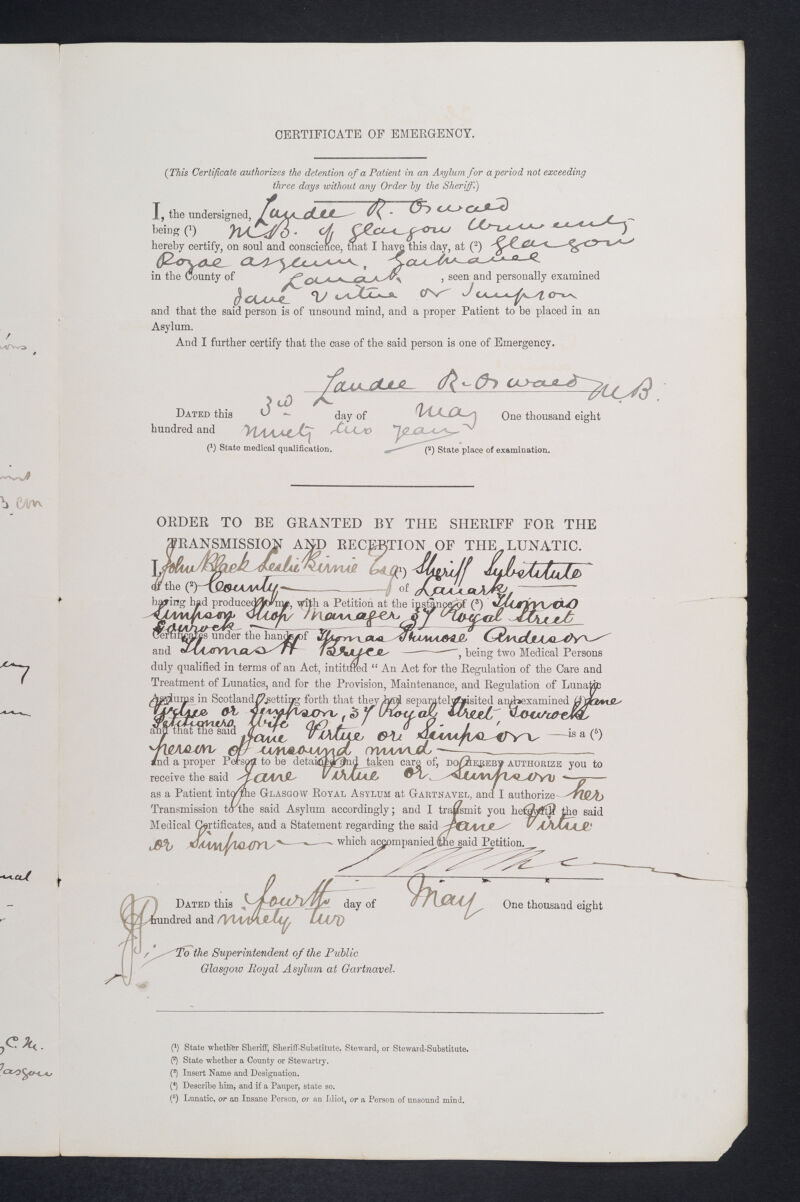 CERTIFICATE OF EMERGENCY.
(This Certificate authorizes the detention of a Patient in an Asylum for a period not exceeding
three days without any Order by the Sheriff.)
I, the undersigned, Landel R. Oswald
being (¹) M.B. of Glasgow University
hereby certify, on soul and conscience, that I have this day, at (²) Glasgow
Royal Asylum, Gartnavel
in the County of Lanark, seen and personally examined
Jane Virtue or Simpson
and that the said person is of unsound mind, and a proper Patient to be placed in an
Asylum.
And I further certify that the case of the said person is one of Emergency.
Landel R. Oswald M.B.
DATED this 3rd day of May One thousand eight
hundred and ninety two years
(¹) State medical qualification. (²) State place of examination.
ORDER TO BE GRANTED BY THE SHERIFF FOR THE
TRANSMISSION AND RECEPTION OF THE LUNATIC.
I, John Black Leslie Birnie Esq (¹) Sheriff Substitute
of the (²) County of Lanark,
having had produced to me, with a Petition at the instance of (³) Thomas
Simpson Shop Manager 37 Royal Street
Gourock
Certificates under the hands of Thomas Primrose Anderson
and Thomas H Bryce, being two Medical Persons
duly qualified in terms of an Act, intituled “ An Act for the Regulation of the Care and
Treatment of Lunatics, and for the Provision, Maintenance, and Regulation of Lunatic
Asylums in Scotland, setting forth that they had separately visited and examined (⁴) Jane
Virtue or Simpson, 37 Royal Street, Gourock
Petitioners Wife
and that the said Jane Virtue or Simpson is a (⁵)
person of unsound mind
and a proper Person to be detained and taken care of, DO HEREBY AUTHORIZE you to
receive the said Jane Virtue or Simpson
as a Patient into the GLASGOW ROYAL ASYLUM AT GARTNAVEL, and I authorize her
Transmission to the said Asylum accordingly; and I transmit you herewith the said
Medical Certificates, and a Statement regarding the said Jane Virtue
or Simpson which accompanied the said Petition.
DATED this fourth day of May One thousand eight
hundred and ninety two
To the Superintendent of the Public
Glasgow Royal Asylum at Gartnavel.
(¹) State whether Sheriff, Sheriff-Substitute, Steward, or Steward-Substitute.
(²) State whether a County or Stewartry.
(³) Insert Name and Designation.
(⁴) Describe him, and if a Pauper, state so.
(⁵) Lunatic, or an Insane Person, or an Idiot, or a Person of unsound mind.
C.M.
Glasgow